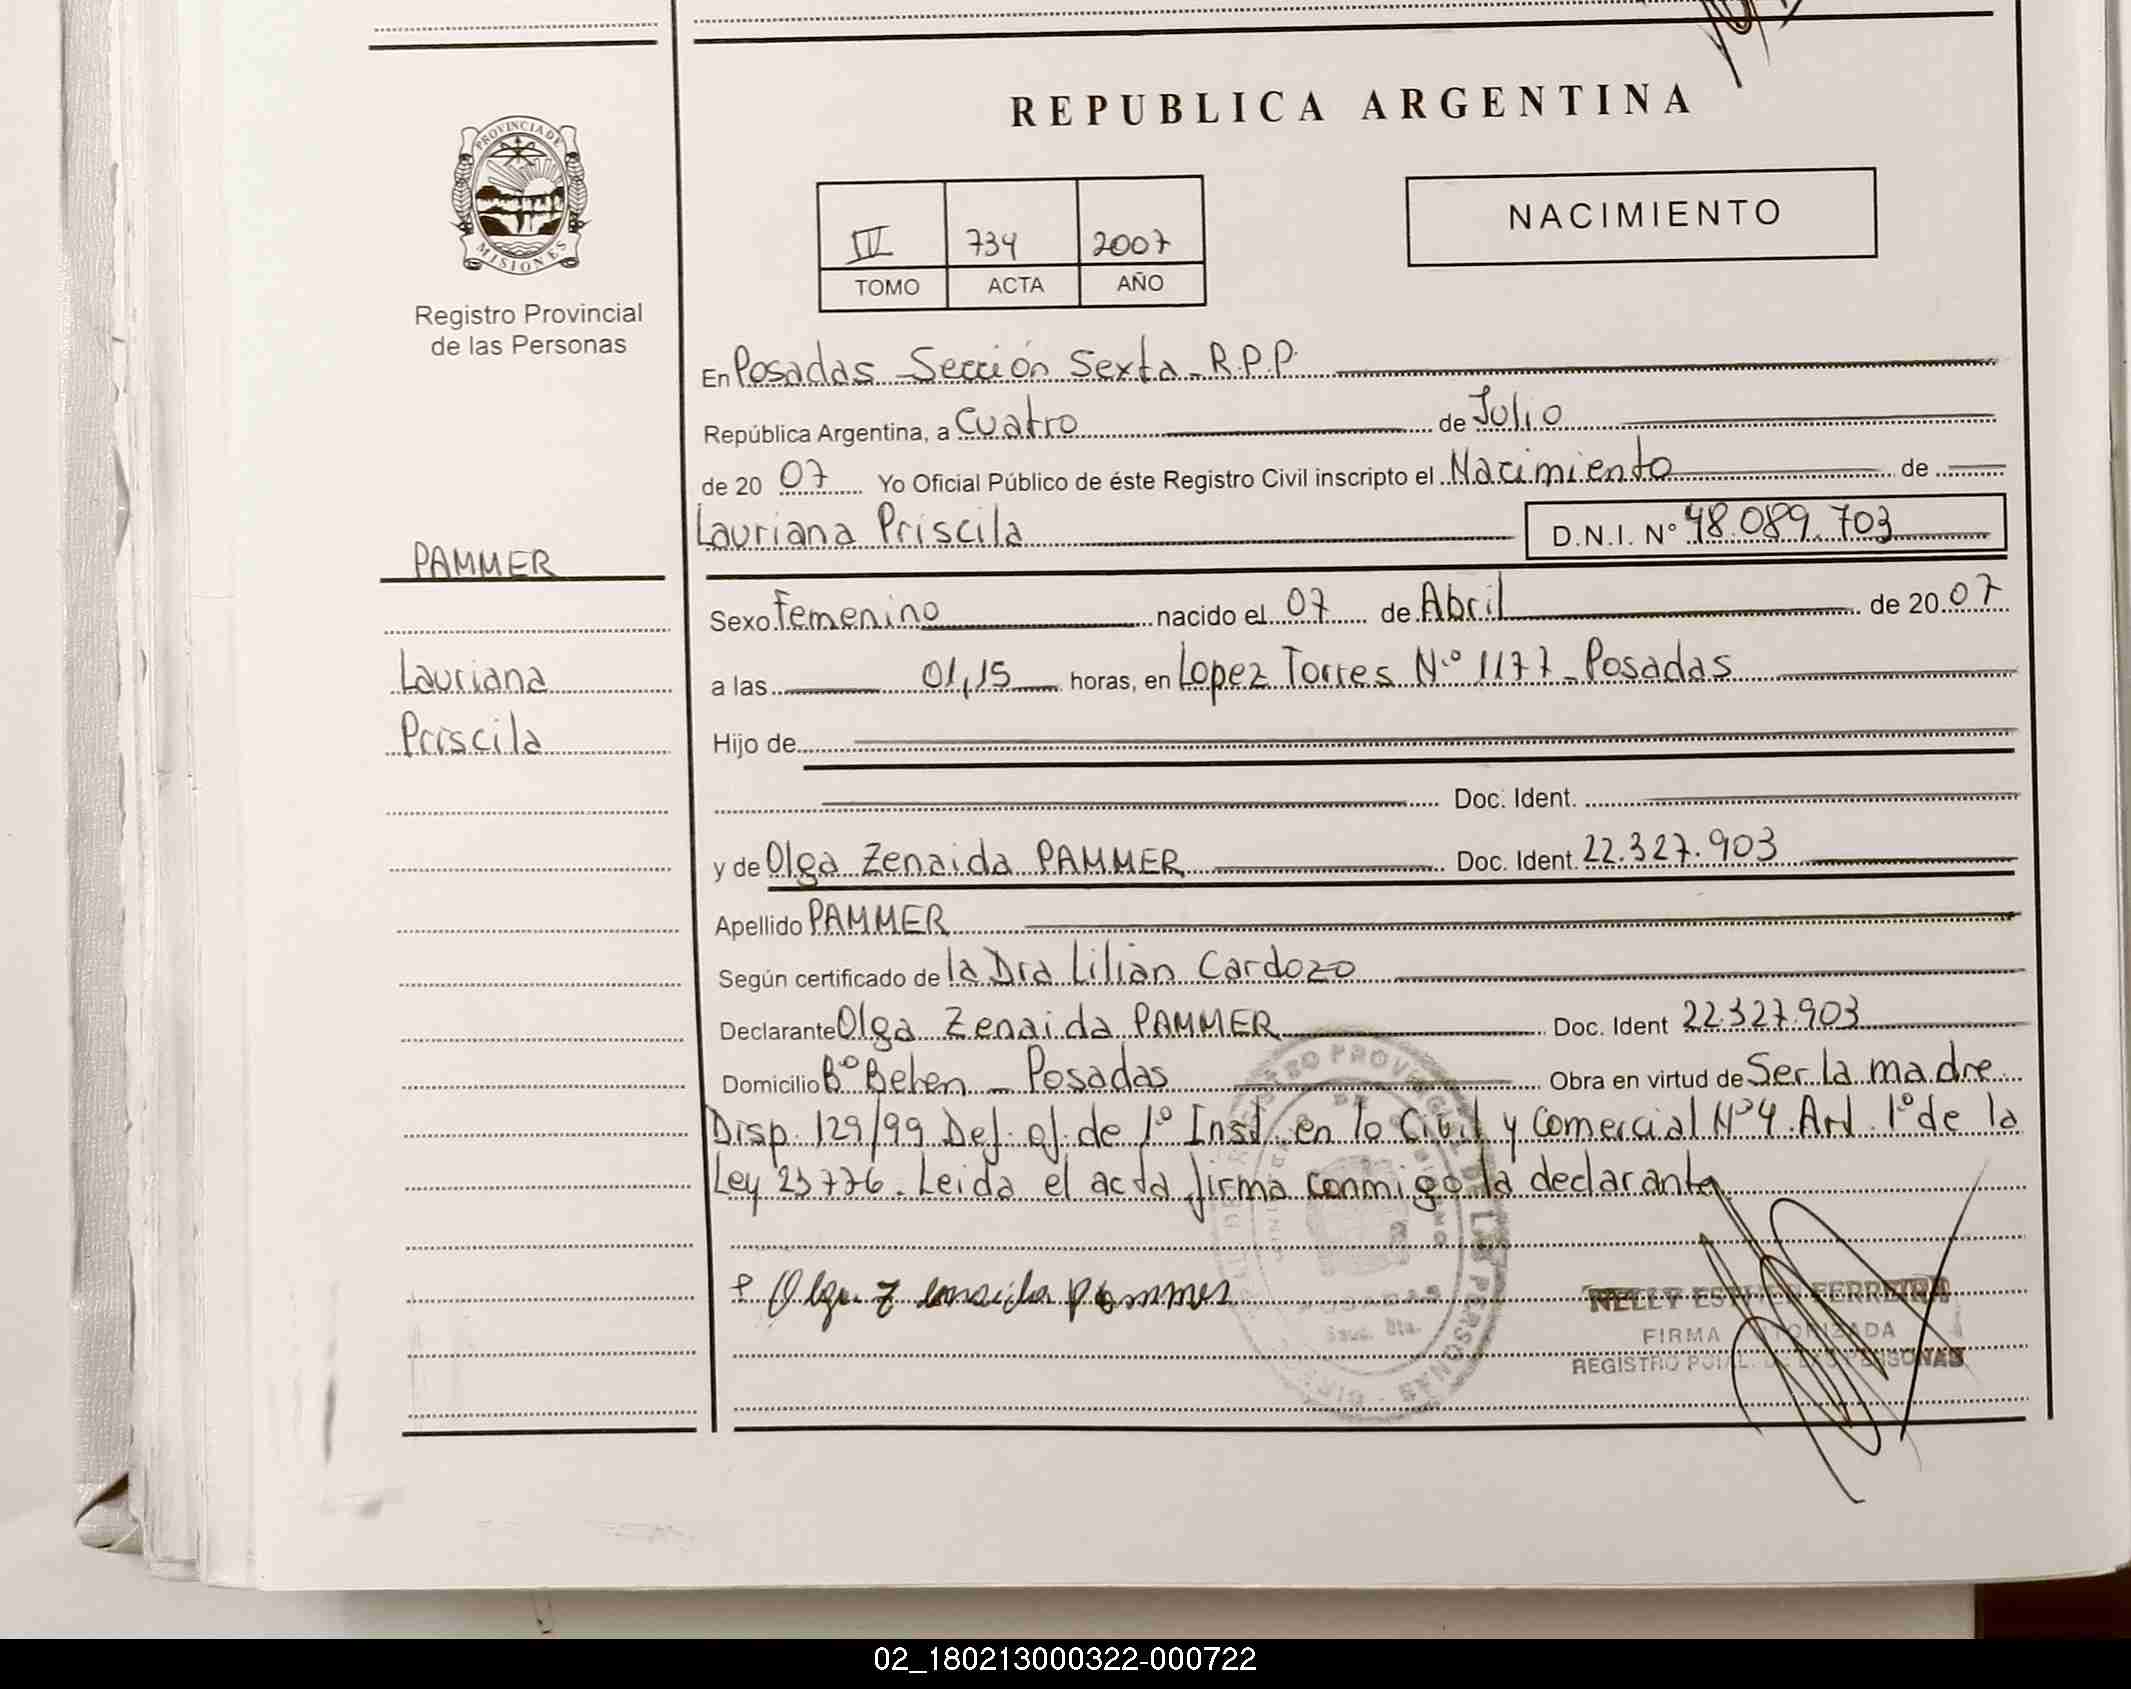 REPUBLICA ARGENTINA
PROVINCIA DE
MISIONES
Registro Provincial
de las Personas
NACIMIENTO
III 734 2007
TOMO ACTA AÑO
En Posadas - Sección Sexta - R.P.P.
República Argentina, a Cuatro de Julio
de 20 07 Yo Oficial Público de éste Registro Civil inscripto el Nacimiento de
Lauriana Priscila D.N.I. N° 48.089.703
PAMMER
Lauriana
Priscila
Sexo Femenino nacido el 07 de Abril de 20 07
a las 01,15 horas, en Lopez Torres N° 1177 - Posadas
Hijo de
Doc. Ident.
y de Olga Zenaida PAMMER Doc. Ident. 22.327.903
Apellido PAMMER
Según certificado de la Dra Lilian Cardozo
Declarante Olga Zenaida PAMMER Doc. Ident 22.327.903
Domicilio B° Belen - Posadas Obra en virtud de Ser la madre
Disp. 129/99 Def. of. de 1° Inst. en lo Civil y Comercial N° 4. Art. 1° de la
Ley 23776. Leida el acta firma conmigo la declarante
Olga Zenaida Pammer
NELLY ESTHER FERREIRA
FIRMA AUTORIZADA
REGISTRO PCIAL. DE LAS PERSONAS
POSADAS
02_180213000322-000722